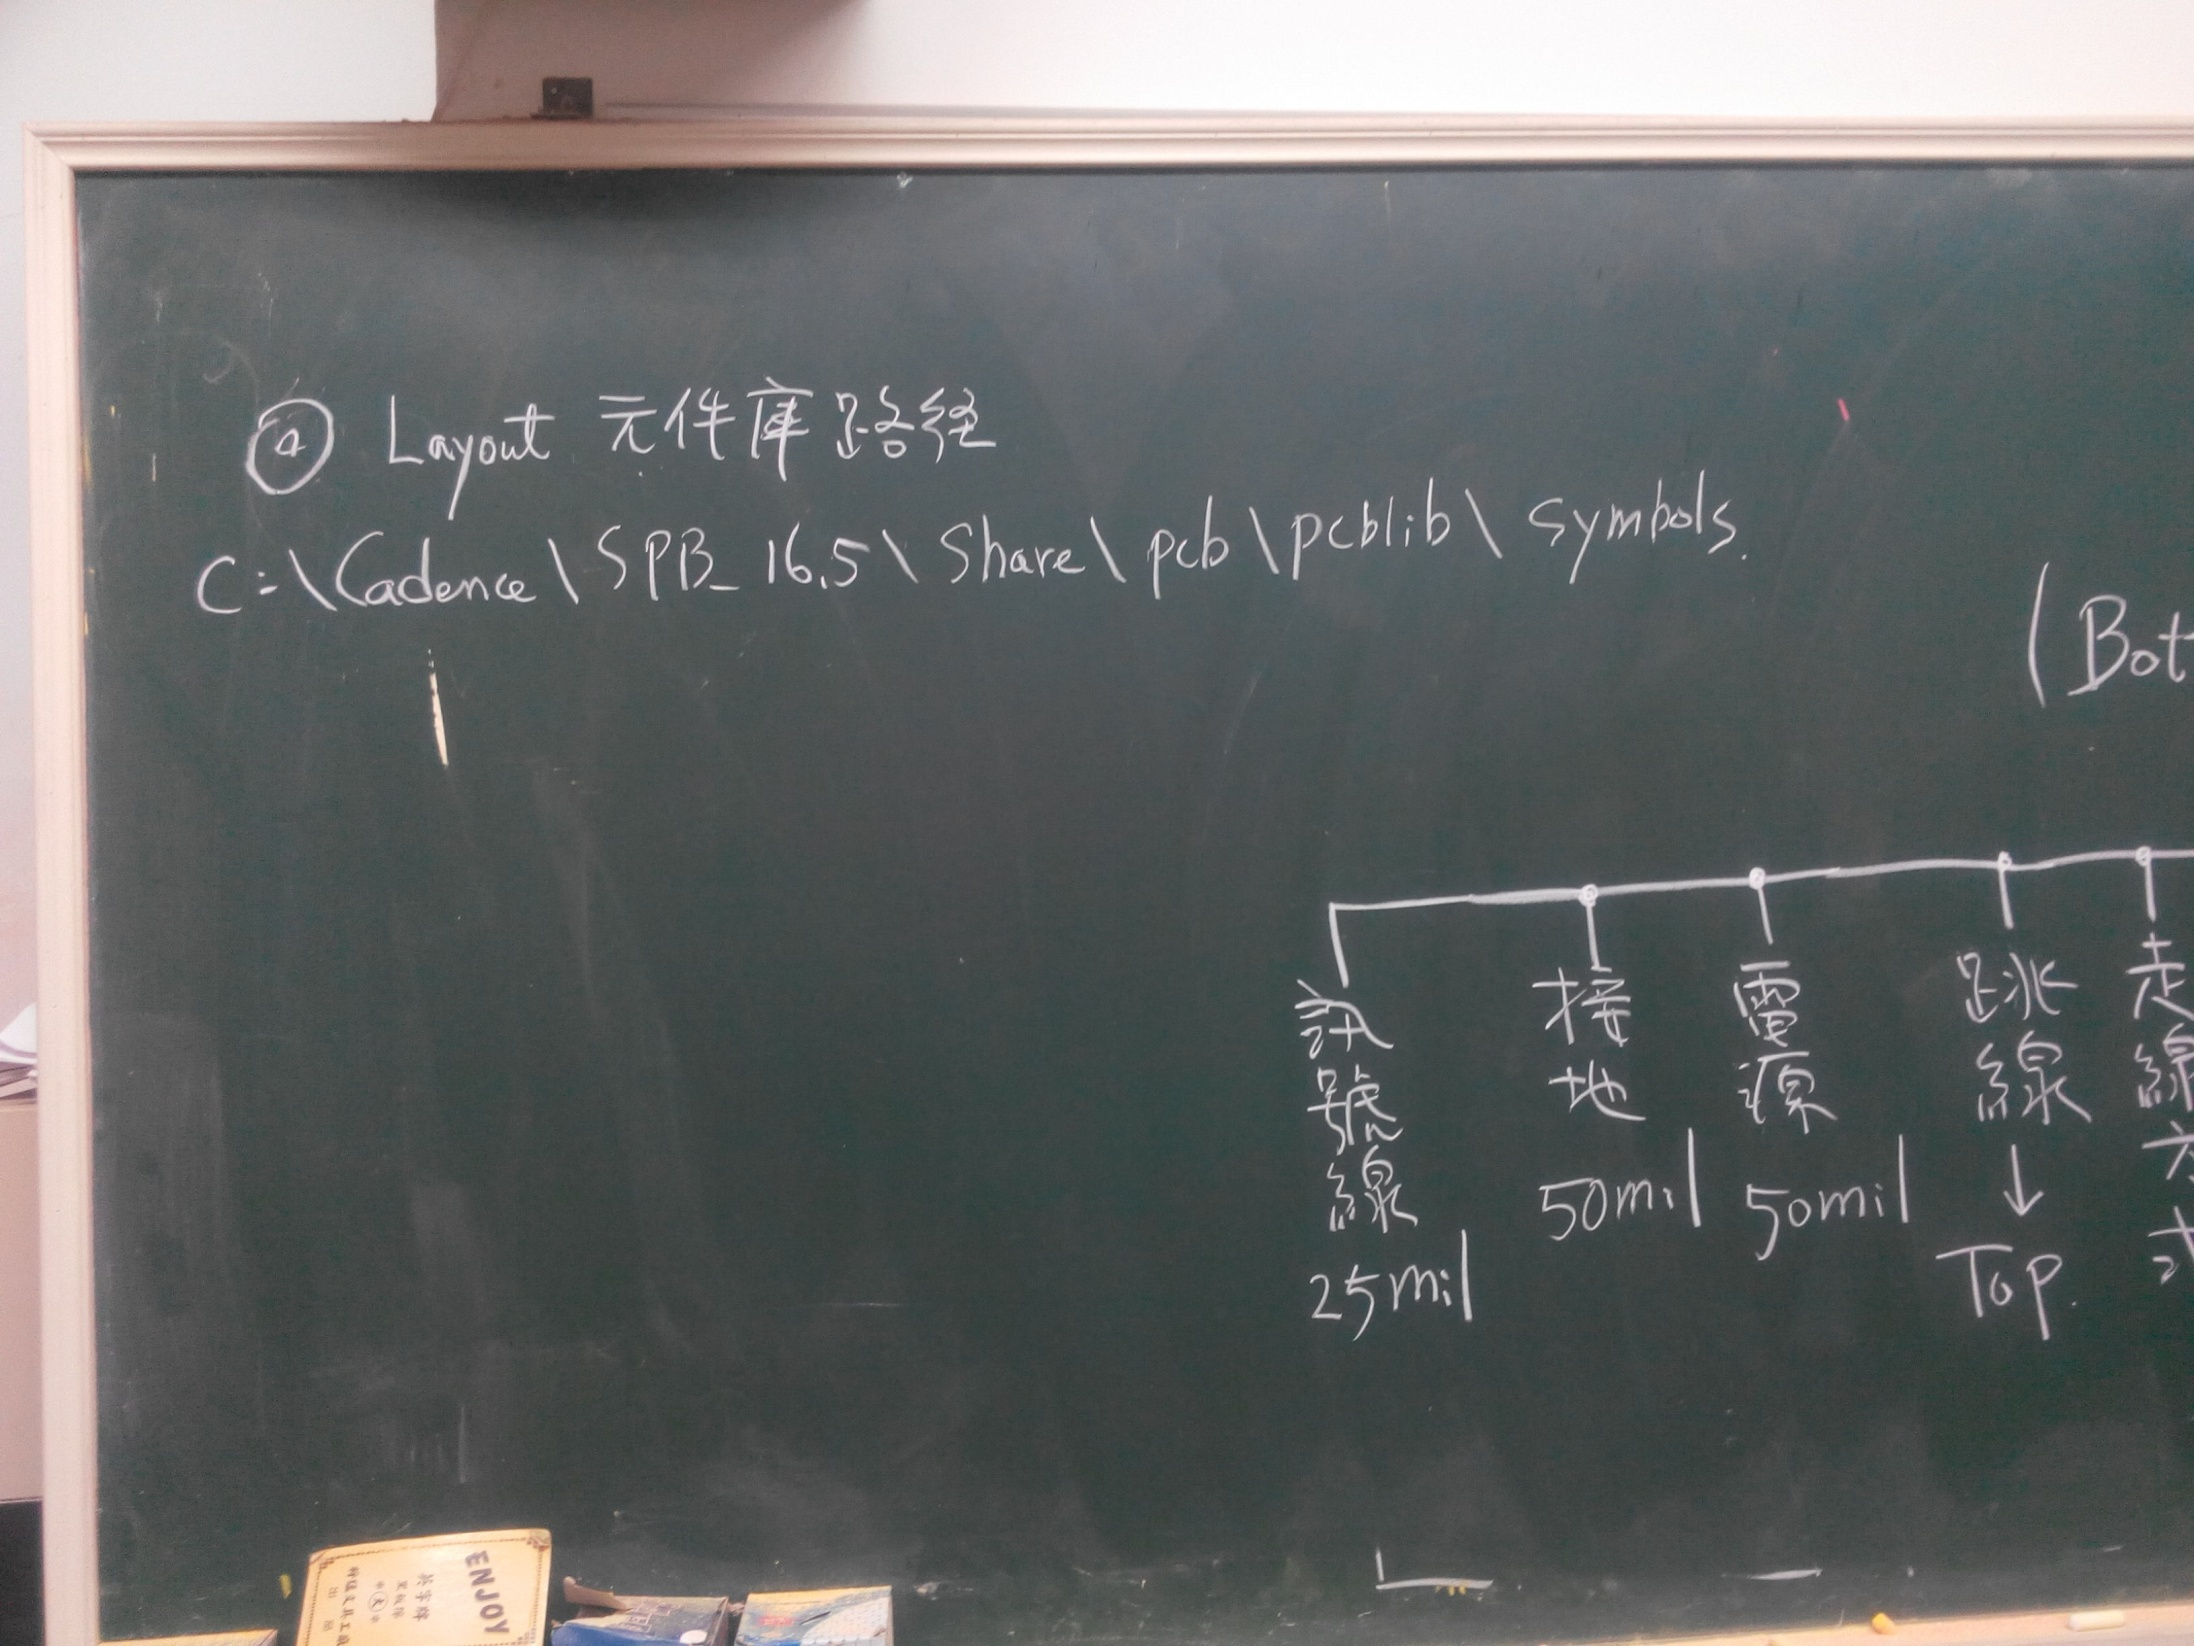 ④ Layout 元件庫路径
C:\Cadence\SPB_16.5\Share\pcb\pcblib\symbols.
(Bot
訊號線
25mil
接地
50mil
電源
50mil
跳線
↓
Top.
走線方式
ENJOY